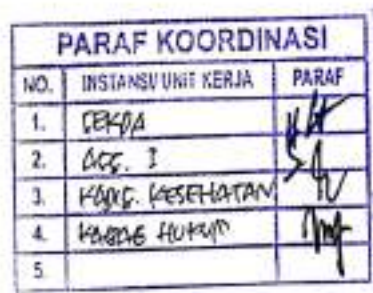 PARAF KOORDINASI
NO. INSTANSI/UNIT KERJA PARAF
1. SEKDA
2. ASS. I
3. KADIS. KESEHATAN
4. KABAG HUKUM
5.